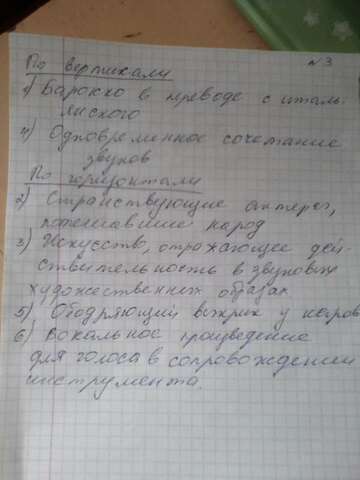 №3
По вертикали
1) Барокко в преводе с италь-
янского
4) Одновременное сочетание
звуков
По горизонтали
2) Странствующие актеры,
потешавшие народ
3) Искусство, отражающее дей-
ствительность в звуковых
художественных образах
5) Ободряющий вскрик у негров
6) Вокальное произведение
для голоса в сопровождении
инструмента.